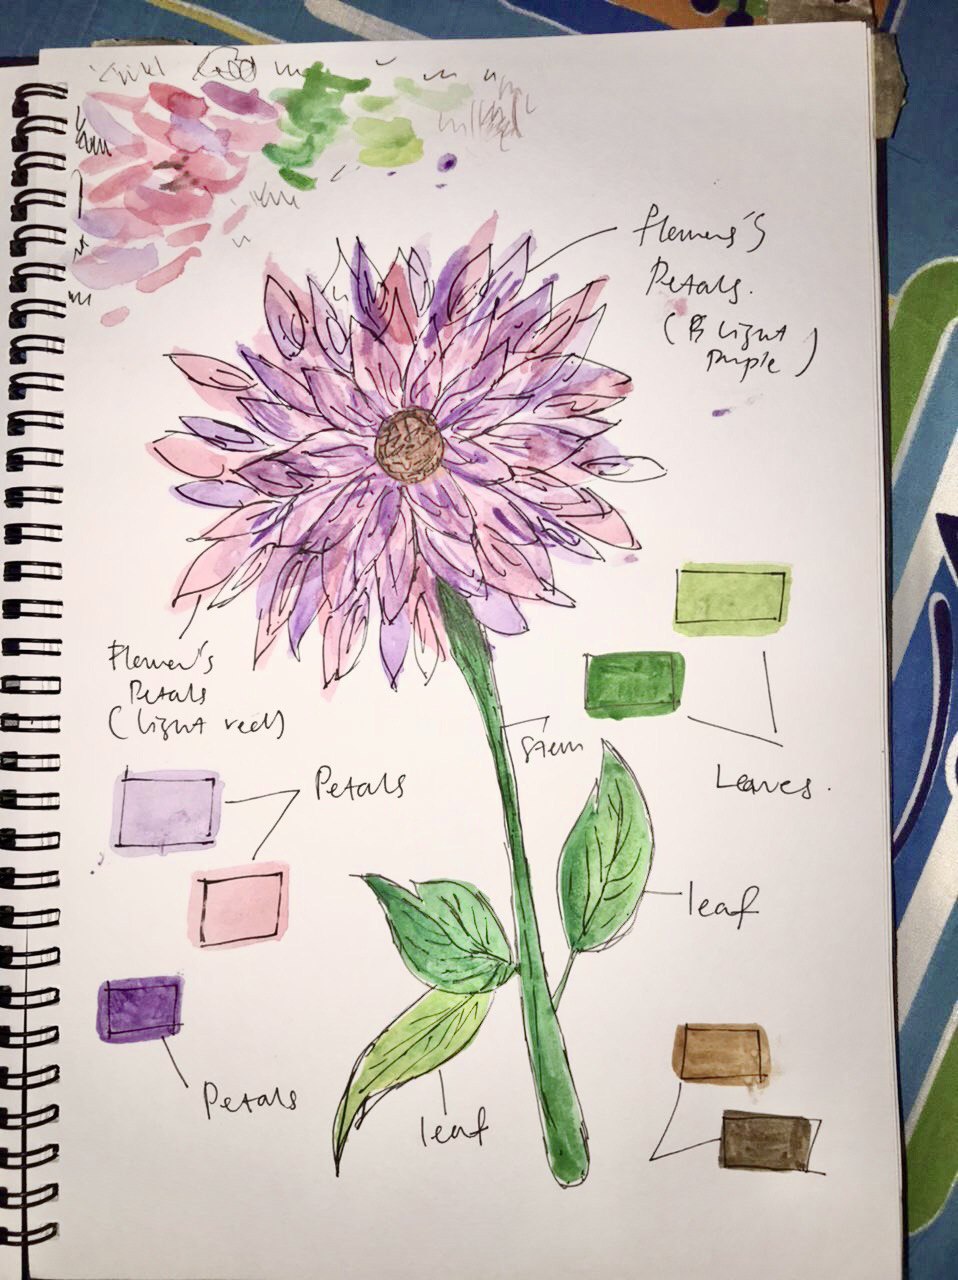 Flower's
Petals.
( Light
Purple )
Flower's
Petals
( light red )
Stem
Petals
Leaves.
leaf
Petals
leaf